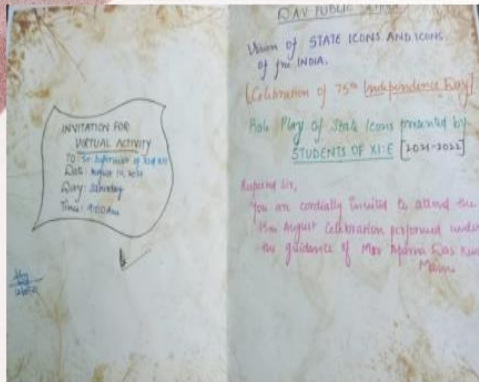 INVITATION FOR
VIRTUAL ACTIVITY
TO:
Date: August 14, 2021
Day: Saturday
Time: 9:00 Am
DAV PUBLIC
Union of STATE ICONS AND ICONS
of INDIA.
[Celebration of 75th Independence Day]
Role Play of State Icons presented by
STUDENTS OF XI:E [2021-2022]
Respected Sir,
You are cordially invited to attend the
15th August Celebration performed under
the guidance of Mrs Aparna Das
Mam